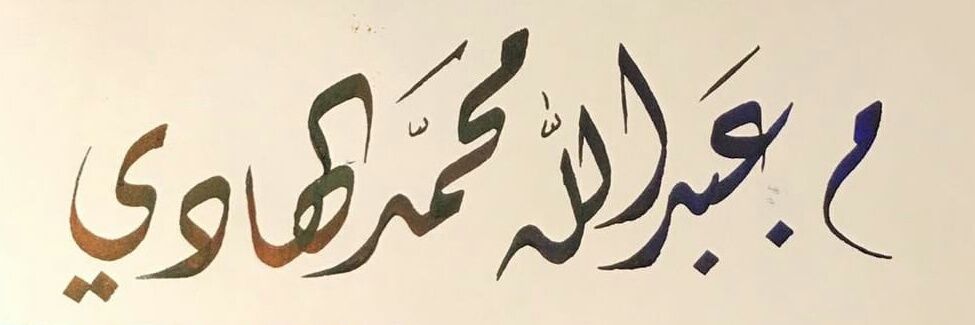 م عبدالله محمد الهادي